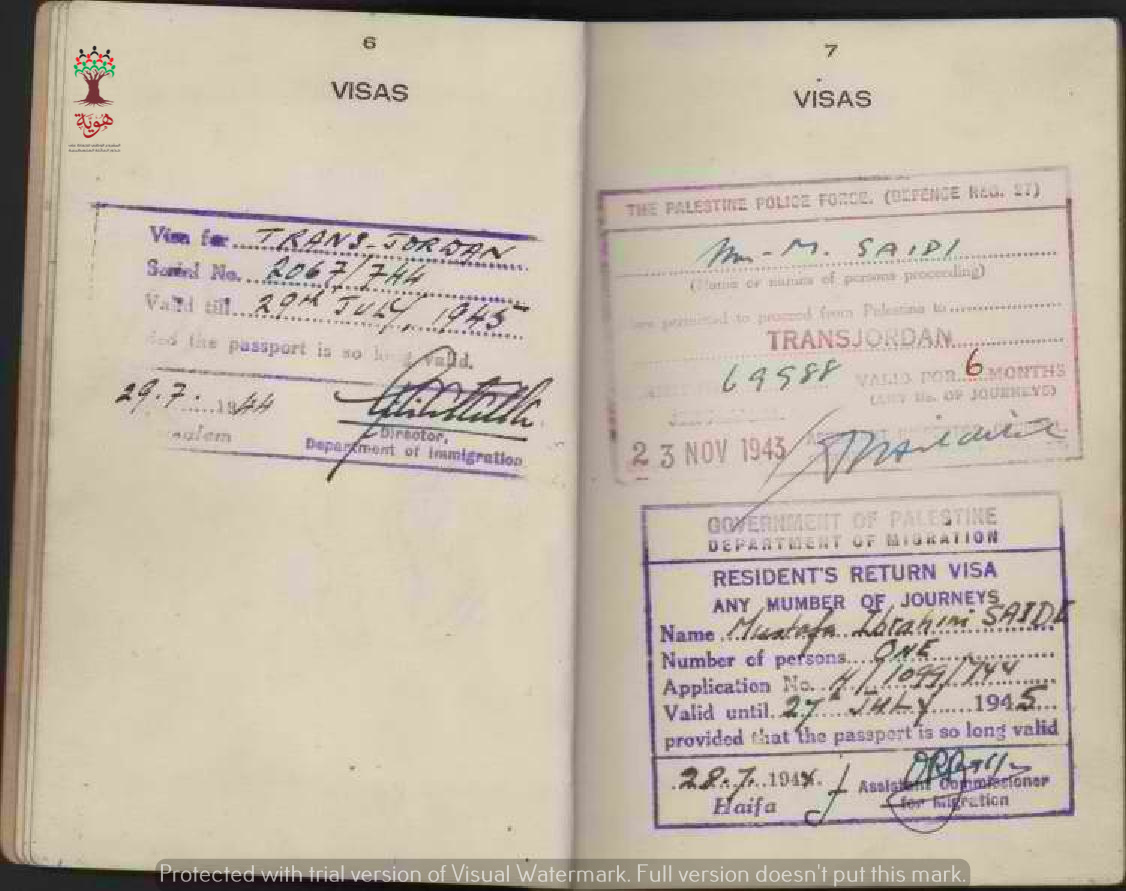 6
VISAS
هوية
Visa for TRANS-JORDAN
Serial No. 2067/744
Valid till 29th JULY, 1945
the passport is so long valid.
29.7. 1944
Director,
Department of Immigration
7
VISAS
THE PALESTINE POLICE FORCE. (DEFENCE REG. 27)
M. SAIDI
(Name or names of persons proceeding)
are permitted to proceed from Palestine to
TRANSJORDAN
69988 VALID FOR 6 MONTHS
(ANY No. OF JOURNEYS)
23 NOV 1943
GOVERNMENT OF PALESTINE
DEPARTMENT OF MIGRATION
RESIDENT'S RETURN VISA
ANY MUMBER OF JOURNEYS
Name Mustafa Ibrahim SAIDI
Number of persons ONE
Application No. H/1099/744
Valid until 27th JULY 1945
provided that the passport is so long valid
28.7.1944.
Haifa
Assistant Commissioner
for Migration
Protected with trial version of Visual Watermark. Full version doesn't put this mark.